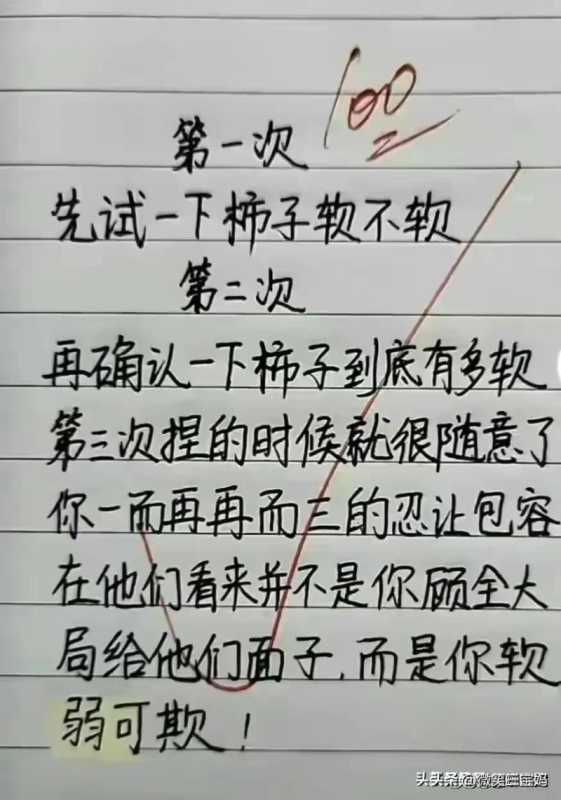 100
第一次
先试一下柿子软不软
第二次
再确认一下柿子到底有多软
第三次捏的时候就很随意了
你一而再再而三的忍让包容
在他们看来并不是你顾全大
局给他们面子,而是你软
弱可欺!